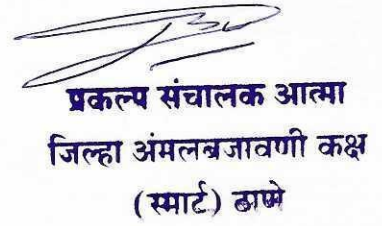 प्रकल्प संचालक आत्मा
जिल्हा अंमलबजावणी कक्ष
(स्मार्ट) ठाणे